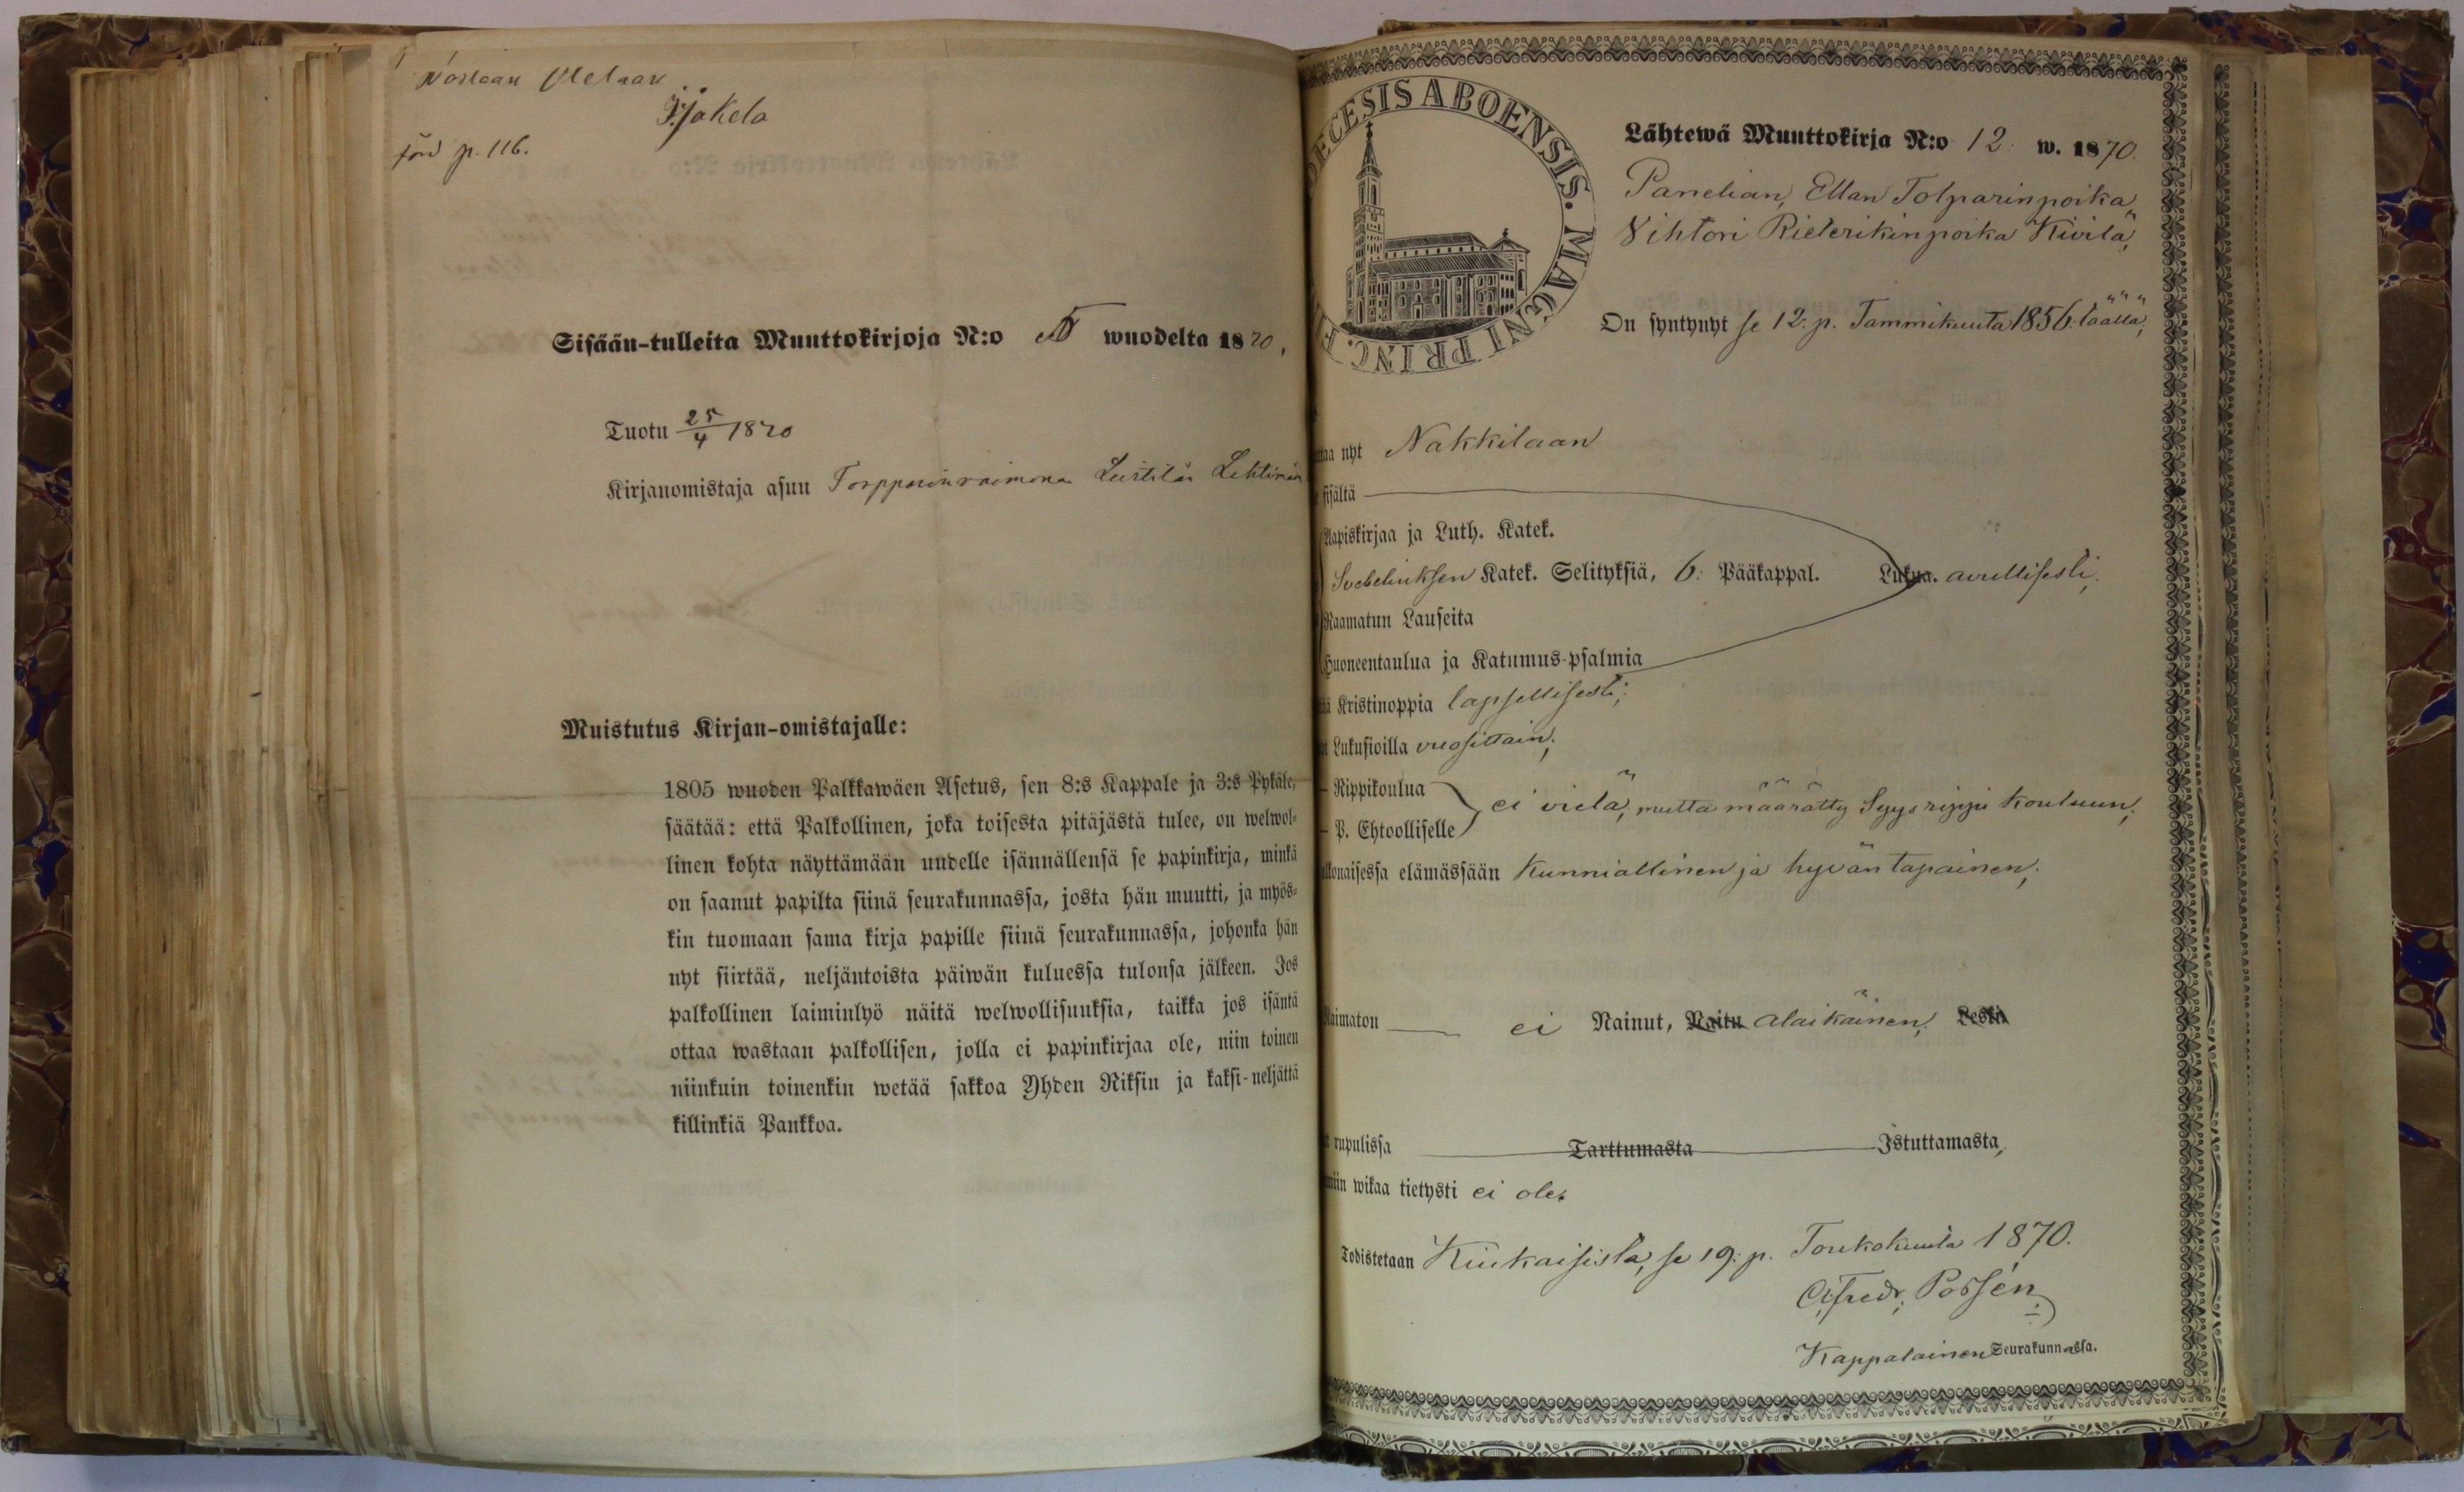 förd p. 116.
Sisään-tulleita Muuttokirjoja N:o wuodelta 1870,
Tuotu 25/4 1870
Kirjanomistaja asuu Torpparinvaimona Leistilän
Muistutus Kirjan-omistajalle:
1805 wuoden Palkkawäen Asetus, sen 8:s Kappale ja 3:s Pykäle,
säätää: että Palkollinen, joka toisesta pitäjästä tulee, on welwol-
linen kohta näyttämään uudelle isännällensä se papinkirja, minkä
on saanut papilta siinä seurakunnassa, josta hän muutti, ja myös-
kin tuomaan sama kirja papille siinä seurakunnassa, johonka hän
nyt siirtää, neljäntoista päiwän kuluessa tulonsa jälkeen. Jos
palkollinen laiminlyö näitä welwollisuuksia, taikka jos isäntä
ottaa wastaan palkollisen, jolla ei papinkirjaa ole, niin toinen
niinkuin toinenkin wetää sakkoa Yhden Riksin ja kaksi-neljättä
killinkiä Pankkoa.
ECESIS ABOENSIS. MAGNI PRINC. F
Lähtewä Muuttokirja N:o 12. w. 1870.
Panelian, Ellan Tolparinpoika,
Vihtori Rieterikinpoika Kivilä,
On syntynyt se 12. p. Tammikuuta 1856. täällä,
taa nyt Nakkilaan
sisältä
Aapiskirjaa ja Luth. Katek.
Svebeliuksen Katek. Selityksiä, 6: Pääkappal. Lukua. avullisesti,
Raamatun Lauseita
Huoneentaulua ja Katumus-psalmia
ää Kristinoppia lapsellisesti;
t Lukusioilla vuosittain,
- Rippikoulua
- P. Ehtoolliselle
ei vielä, mutta määrätty Syys rippi kouluun;
lkonaisessa elämässään Kunniallinen ja hyvän tapainen,
Naimaton ei Nainut, Naitu alaikäinen, Leski
t rupulissa Tarttumasta Istuttamasta,
niin wikaa tietysti ei ole.
Todistetaan Kiukaisista, se 19. p. Toukokuuta 1870.
Alfredr. Possén
Kappalainen Seurakunnassa.